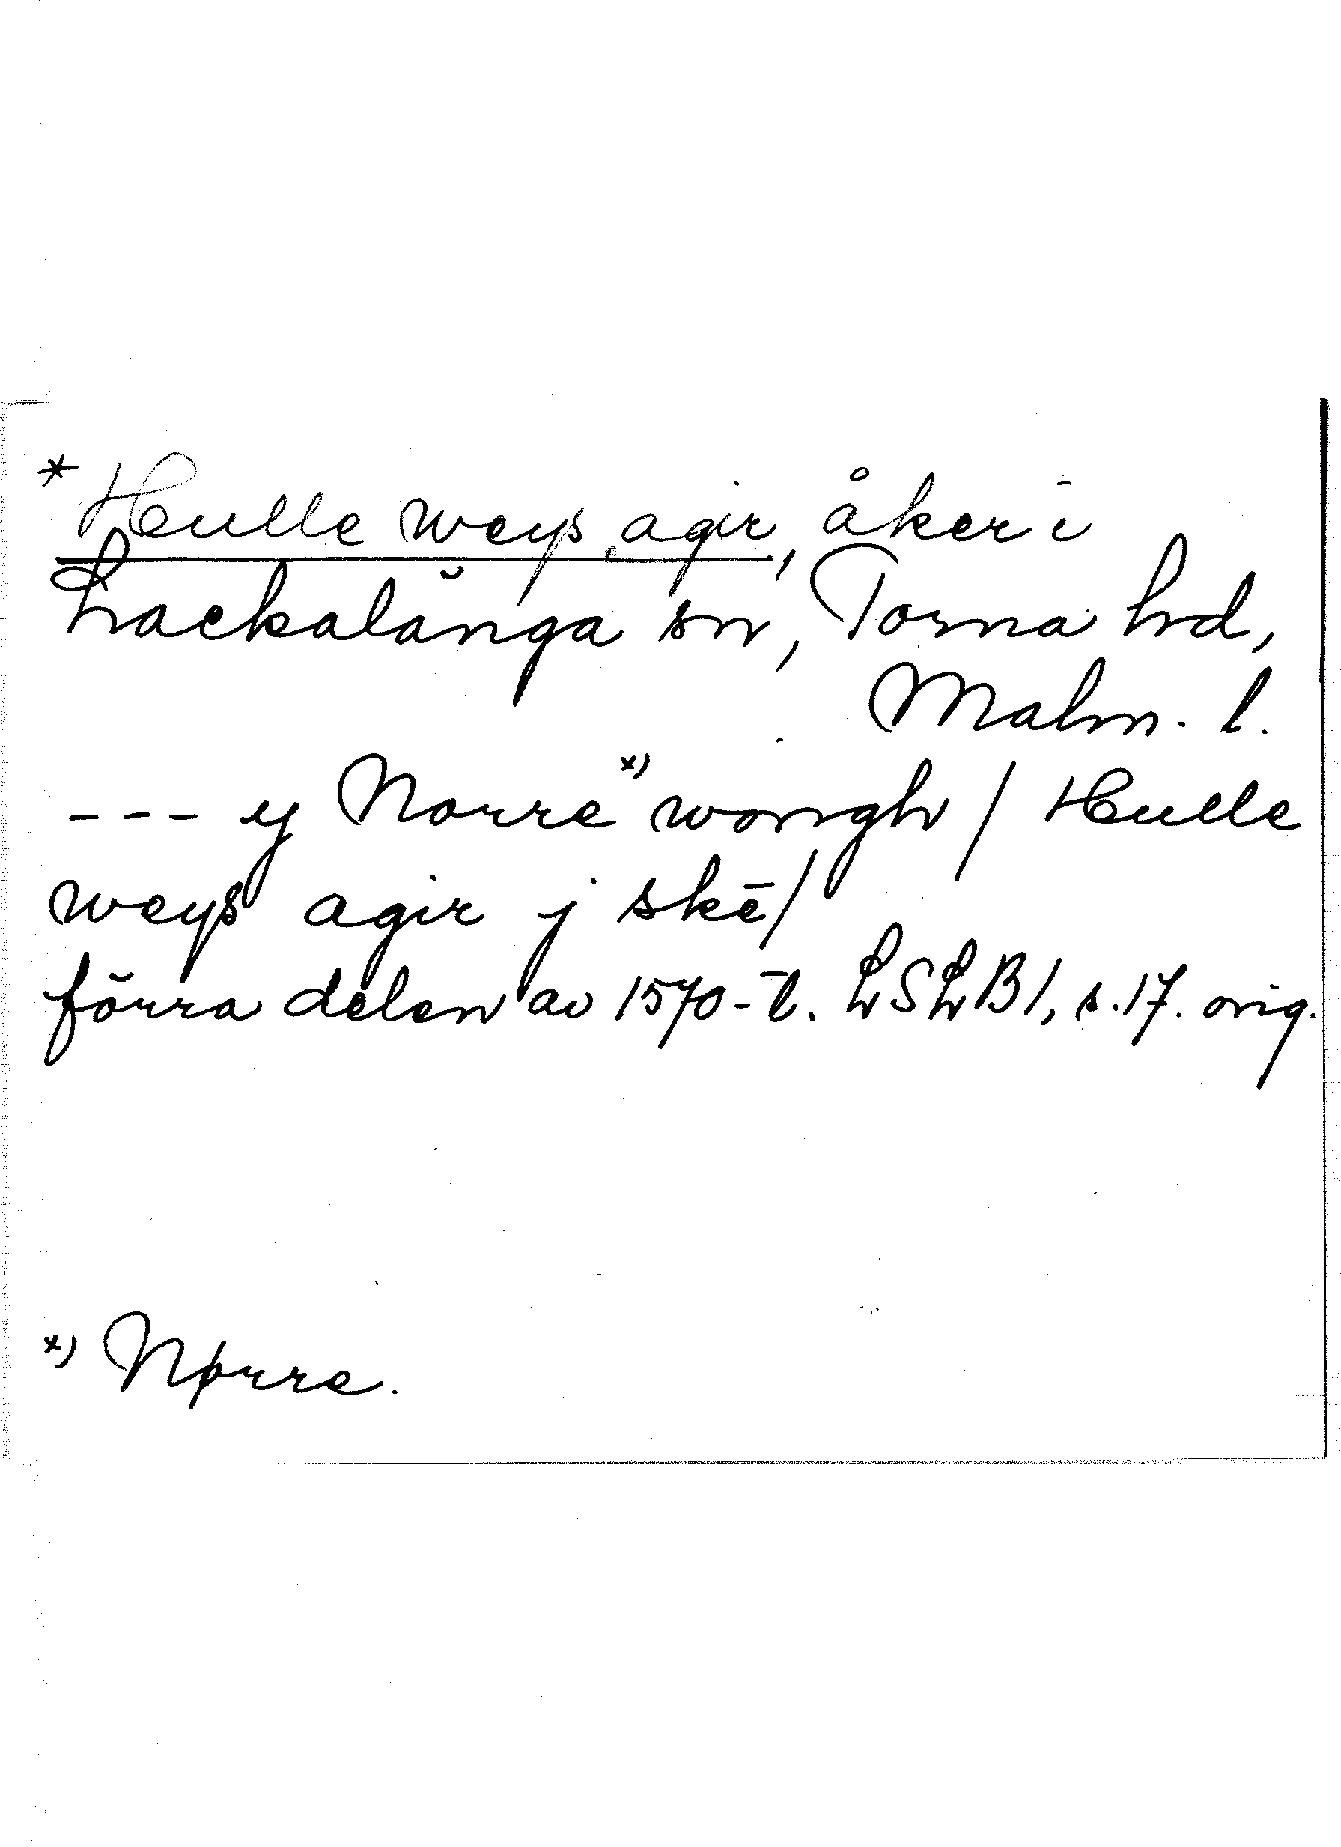 * Hulle weys agir, åker i
Lackalånga sn, Torna hd,
Malm. l.
--- y Norre x) wongh / Hulle
weys agir j skē/
förra delen av 1570-t. LSLB 1, s. 17. orig.
x) Nørre.